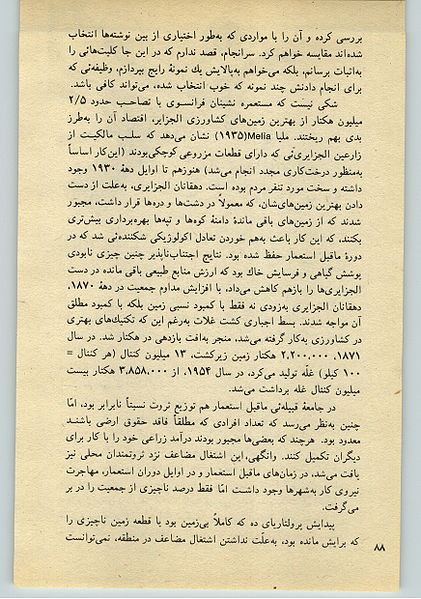 بررسی کرده و آن را با مواردی که به‌طور اختیاری از بین نوشته‌ها انتخاب
شده‌اند مقایسه خواهم کرد. سرانجام، قصد ندارم که در این جا کلیت‌هائی را
به‌اثبات برسانم، بلکه می‌خواهم به‌پالایش یك نمونهٔ رایج بپردازم، وظیفه‌ئی که
برای انجام دادنش چند نمونه که خوب انتخاب شده، می‌تواند کافی باشد.
شکی نیست که مستعمره نشینان فرانسوی با تصاحب حدود ۲/۵
میلیون هکتار از بهترین زمین‌های کشاورزی الجزایر، اقتصاد آن را به‌طرز
بدی بهم ریختند. ملیا Melia(۱۹۳۵) نشان می‌دهد که سلب مالکیت از
زارعین الجزایری‌ئی که دارای قطعات مزروعی کوچکی‌بودند (این‌کار اساساً
به‌منظور درخت‌کاری مجدد انجام می‌شد) هنوزهم تا اوایل دههٔ ۱۹۳۰ وجود
داشته و سخت مورد تنفر مردم بوده است. دهقانان الجزایری، به‌علت از دست
دادن بهترین زمین‌های‌شان، که معمولاً در دشت‌ها و دره‌ها قرار داشت، مجبور
شدند که از زمین‌های باقی ماندهٔ دامنهٔ کوه‌ها و تپه‌ها بهره‌برداری بیش‌تری
بکنند، که این کار باعث به‌هم خوردن تعادل اکولوژیکی شکننده‌ئی شد که در
دورهٔ ماقبل استعمار حفظ شده بود. نتایج اجتناب‌ناپذیر چنین چیزی نابودی
پوشش گیاهی و فرسایش خاك بود که ارزش منابع طبیعی باقی مانده در دست
الجزایری‌ها را بازهم کاهش می‌داد، با افزایش مداوم جمعیت در دههٔ ۱۸۷۰،
دهقانان الجزایری به‌زودی نه فقط با کمبود نسبی زمین بلکه با کمبود مطلق
آن مواجه شدند. بسط اجباری کشت غلات به‌رغم این که تکنیك‌های بهتری
در کشاورزی به‌کار گرفته می‌شد، منجر به‌افت بازدهی در هکتار شد. در سال
۱۸۷۱، ۲،۲۰۰،۰۰۰ هکتار زمین زیرکشت، ۱۳ میلیون کنتال (هر کنتال =
۱۰۰ کیلو) غلّه تولید می‌کرد، در سال ۱۹۵۴، از ۳،۸۵۸،۰۰۰ هکتار بیست
میلیون کنتال غله برداشت می‌شد.
در جامعهٔ قبیله‌ئی ماقبل استعمار هم توزیع ثروت نسبتاً نابرابر بود، امّا
چنین به‌نظر می‌رسد که تعداد افرادی که مطلقاً فاقد حقوق ارضی باشند
معدود بود. هرچند که بعضی‌ها مجبور بودند درآمد زراعی خود را با کار برای
دیگران تکمیل کنند. وانگهی، این اشتغال مضاعف نزد ثروتمندان محلی نیز
یافت می‌شد، در زمان‌های ماقبل استعمار و در اوایل دوران استعمار، مهاجرت
نیروی کار به‌شهرها وجود داشت امّا فقط درصد ناچیزی از جمعیت را در بر
می‌گرفت.
پیدایش پرولتاریای ده که کاملاً بی‌زمین بود با قطعه زمین ناچیزی را
که برایش مانده بود، به‌علّت نداشتن اشتغال مضاعف در منطقه، نمی‌توانست
۸۸